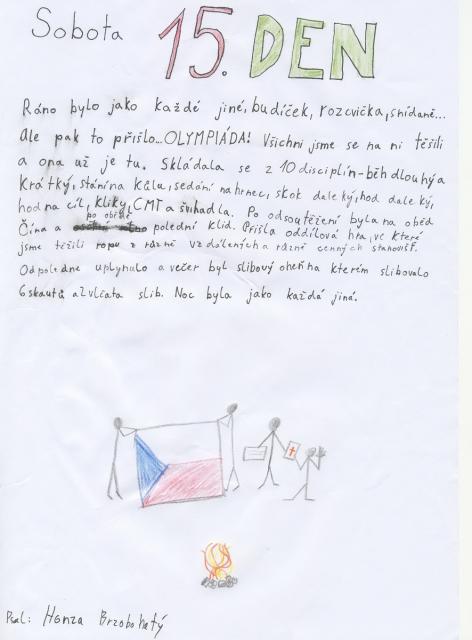 Sobota 15. DEN
Ráno bylo jako každé jiné, budíček, rozcvička, snídaně...
Ale pak to přišlo... OLYMPIÁDA! Všichni jsme se na ni těšili
a ona už je tu. Skládala se z 10 disciplín-běh dlouhý a
krátký, stání na kůlu, sedání na hrnec, skok daleký, hod daleký,
hod na cíl, kliky, CMT a švihadla. Po odsoutěžení byla na oběd
po obědě
Čína a polední klid. Přišla oddílová hra, ve které
jsme těžili ropu z různě vzdálených a různě cenných stanovišť.
Odpoledne uplynulo a večer byl slibový oheň na kterém slibovalo
6 skautů a 2 vlčata slib. Noc byla jako každá jiná.
Psal: Honza Brzobohatý